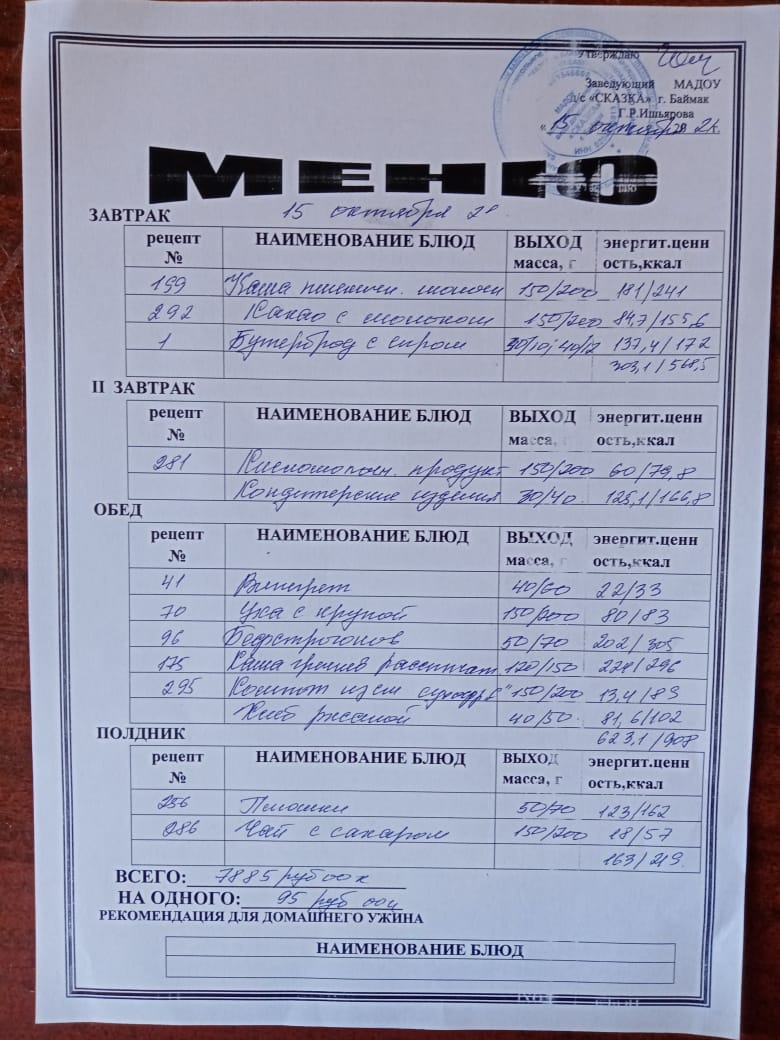 Утверждаю
Заведующий МАДОУ
д/с «СКАЗКА» г. Баймак
Г.Р.Ишъярова
« 15 октября 20 24.
МЕНЮ
ЗАВТРАК 15 октября
рецепт № НАИМЕНОВАНИЕ БЛЮД ВЫХОД масса, г энергит.ценность,ккал
199 Каша пшеничн. молочн 150/200 181/241
292 Какао с молоком 150/200 84,7/155,6
1 Бутерброд с сыром 30/10; 40/12 137,4/172
303,1/568,5
II ЗАВТРАК
рецепт № НАИМЕНОВАНИЕ БЛЮД ВЫХОД масса, г энергит.ценность,ккал
281 Кисломолочн. продукт 150/200 60/79,8
Кондитерские изделия 30/40 125,1/166,8
ОБЕД
рецепт № НАИМЕНОВАНИЕ БЛЮД ВЫХОД масса, г энергит.ценность,ккал
41 Винегрет 40/60 22/33
70 Уха с крупой 150/200 80/83
96 Бефстроганов 50/70 202/305
175 Каша гречнев рассыпчат 120/150 224/296
295 Компот из см сухофр 150/200 13,4/83
Хлеб ржаной 40/50 81,6/102
623,1/908
ПОЛДНИК
рецепт № НАИМЕНОВАНИЕ БЛЮД ВЫХОД масса, г энергит.ценность,ккал
256 Плюшки 50/70 123/162
286 Чай с сахаром 150/200 18/57
163/219
ВСЕГО: 7885 руб 00 к
НА ОДНОГО: 95 руб 00
РЕКОМЕНДАЦИЯ ДЛЯ ДОМАШНЕГО УЖИНА
НАИМЕНОВАНИЕ БЛЮД